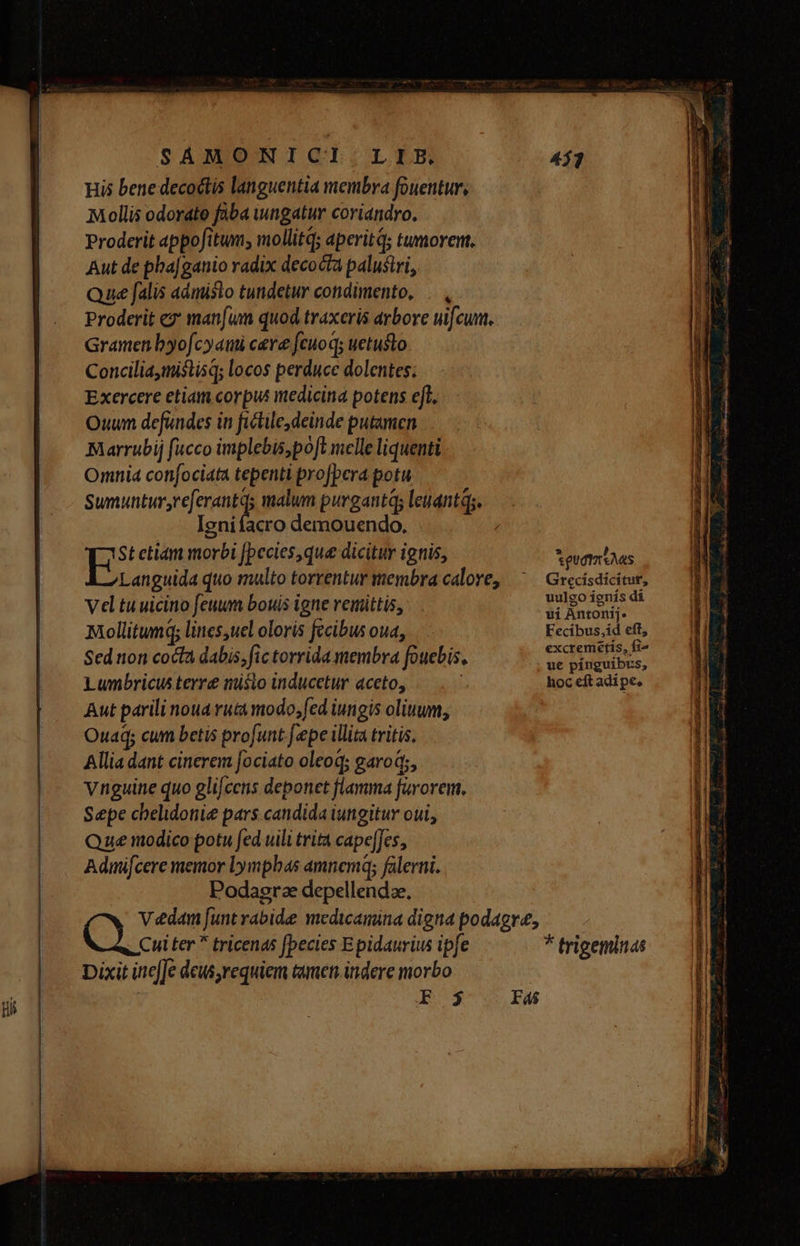 SAMONICI LIB. 457
His bene decoctis languentia membra fouentur,
Mollis odorato faba iungatur coriandro.
Proderit appoſitum, mollitq́; aperitq́; tumorem.
Aut de phaſganio radix decocta palustri,
Quæ ſalis admisto tundetur condimento,
Proderit & manſum quod traxeris arbore uiſcum.
Gramen hyoſcyami ceræ ſeuoq́; uetusto
Concilia, mistisq́; locos perduce dolentes.
Exercere etiam corpus medicina potens eſt,
Ouum defundes in fictile, deinde putamen
Marrubij ſucco implebis, poſt melle liquenti
Omnia conſociata tepenti proſpera potu
Sumuntur, referantq́; malum purgantq́; leuantq́;.
Igni ſacro demouendo.
ESt etiam morbi ſpecies, quæ dicitur ignis,
Languida quo multo torrentur membra calore,
Vel tu uicino ſeuum bouis igne remittis,
Mollitumq́; lines, uel oloris fecibus oua,
Sed non cocta dabis, ſic torrida membra fouebis.
Lumbricus terræ misto inducetur aceto,
Aut parili noua ruta modo, ſed iungis oliuum,
Quaq́; cum betis proſunt ſæpe illita tritis.
Allia dant cinerem ſociato oleoq́; garoq́;,
Vnguine quo gliſcens deponet flamma furorem.
Sæpe chelidoniæ pars candida iungitur oui,
Quæ modico potu ſed uili trita capeſſes,
Admiſcere memor lymphas amnemq́; falerni.
Podagræ depellendæ.
QVædam ſunt rabidæ medicamina digna podagræ,
Cui ter * tricenas ſpecies Epidaurius ipſe
Dixit ineſſe deus, requiem tamen indere morbo
F 5 Fas
Grecis dicitur,
uulgo ignis di
ui Antonij.
Fecibus, id eſt,
excremẽtis, ſi-
ue pinguibus,
hoc eſt adipe.
* trigeminas
His